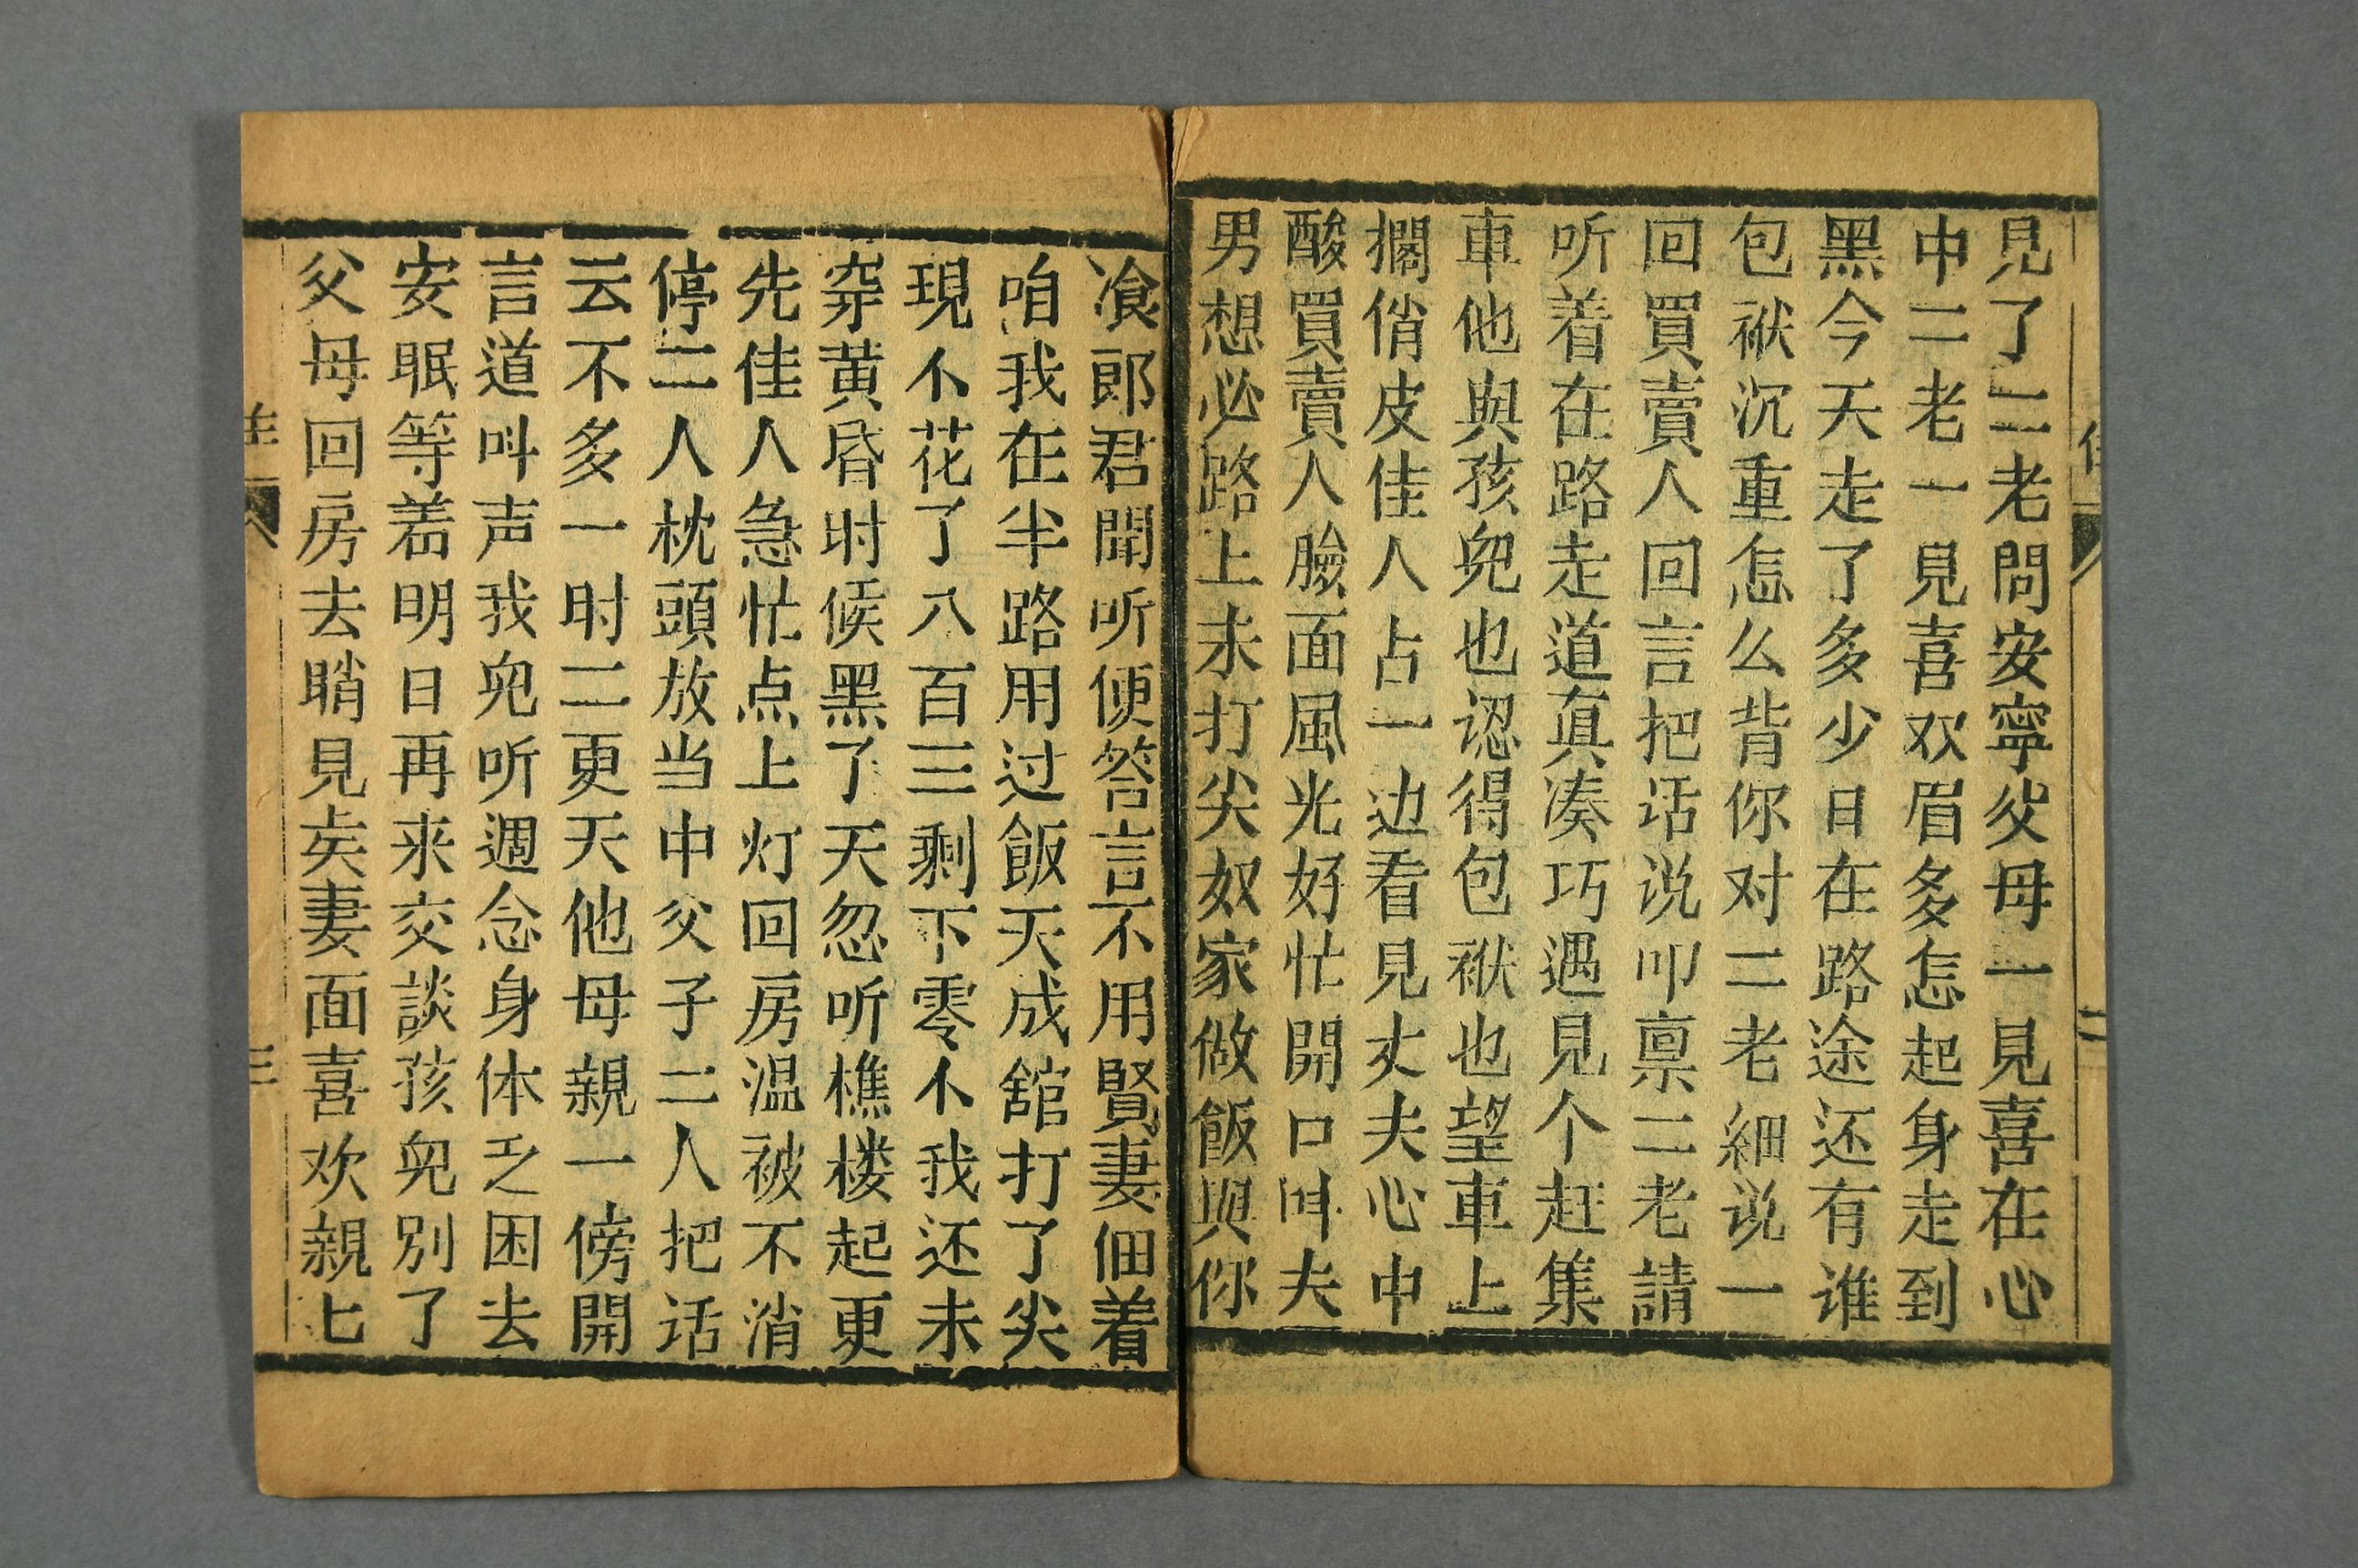 見了二老問安寧父母一見喜在心
中二老一見喜欢眉多怎起身走到
黑今天走了多少日在路途还有谁
包袱沉重怎么背你对二老細说一
回買賣人回言把话说叩禀二老請
听着在路走道真凑巧遇見个赶集
車他與孩兒也认得包袱也望車上
擱俏皮佳人占一边看見丈夫心中
酸買賣人臉面風光好忙開口叫夫
男想必路上未打尖奴家做飯與你
飡郎君聞听便答言不用賢妻佃着
咱我在半路用过飯天成舘打了尖
現不花了八百三剩下零不我还未
穿黄昏时候黑了天忽听樵楼起更
先佳人急忙点上灯回房温被不消
停二人枕頭放当中父子二人把话
云不多一时二更天他母親一傍開
言道叫声我兒听週念身体乏困去
安眠等着明日再来交談孩兒別了
父母回房去睄見矣妻面喜欢親七
佳
二
三